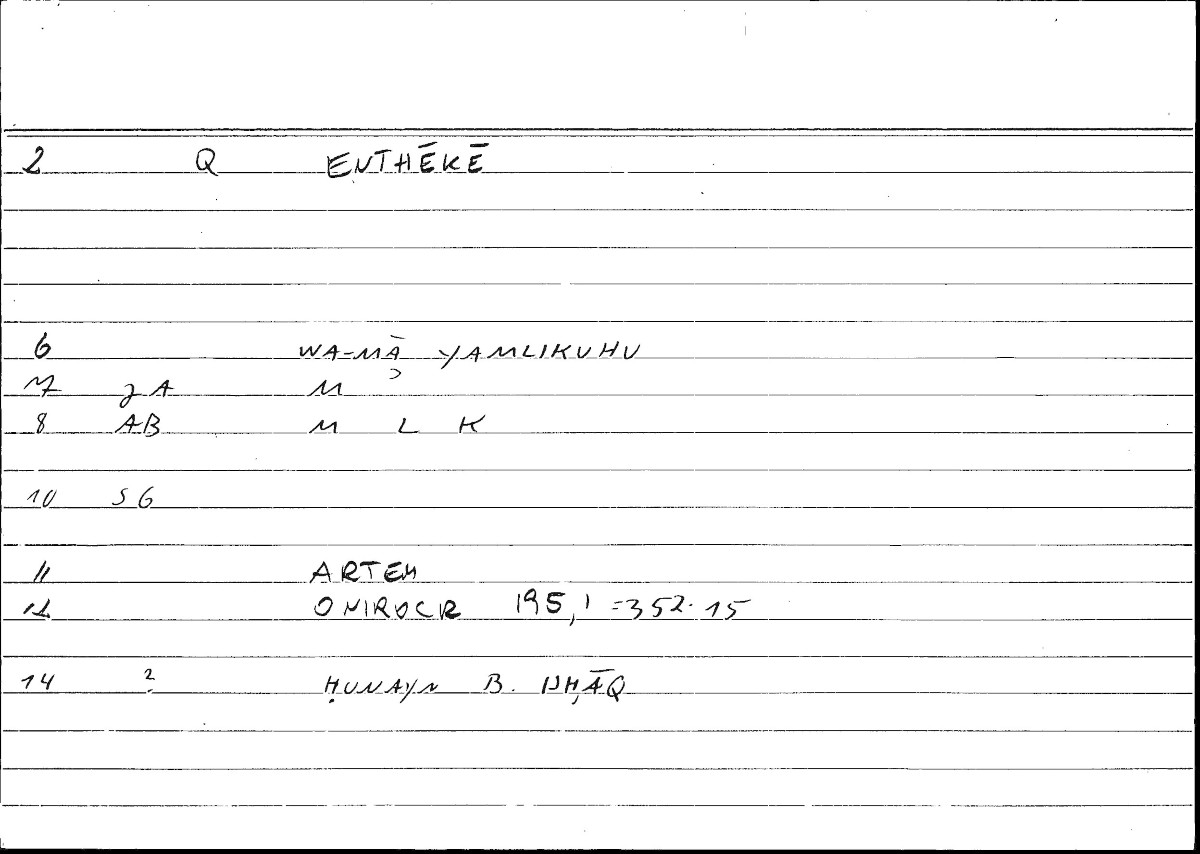 2 Q ENTHĒKĒ
6 WA-MĀ YAMLIKUHU
7 JA M ɔ
8 AB M L K
10 SG
11 ARTEM
12 ONIROCR 195,1 =352.15
14 ? ḤUNAYN B. ISḤĀQ